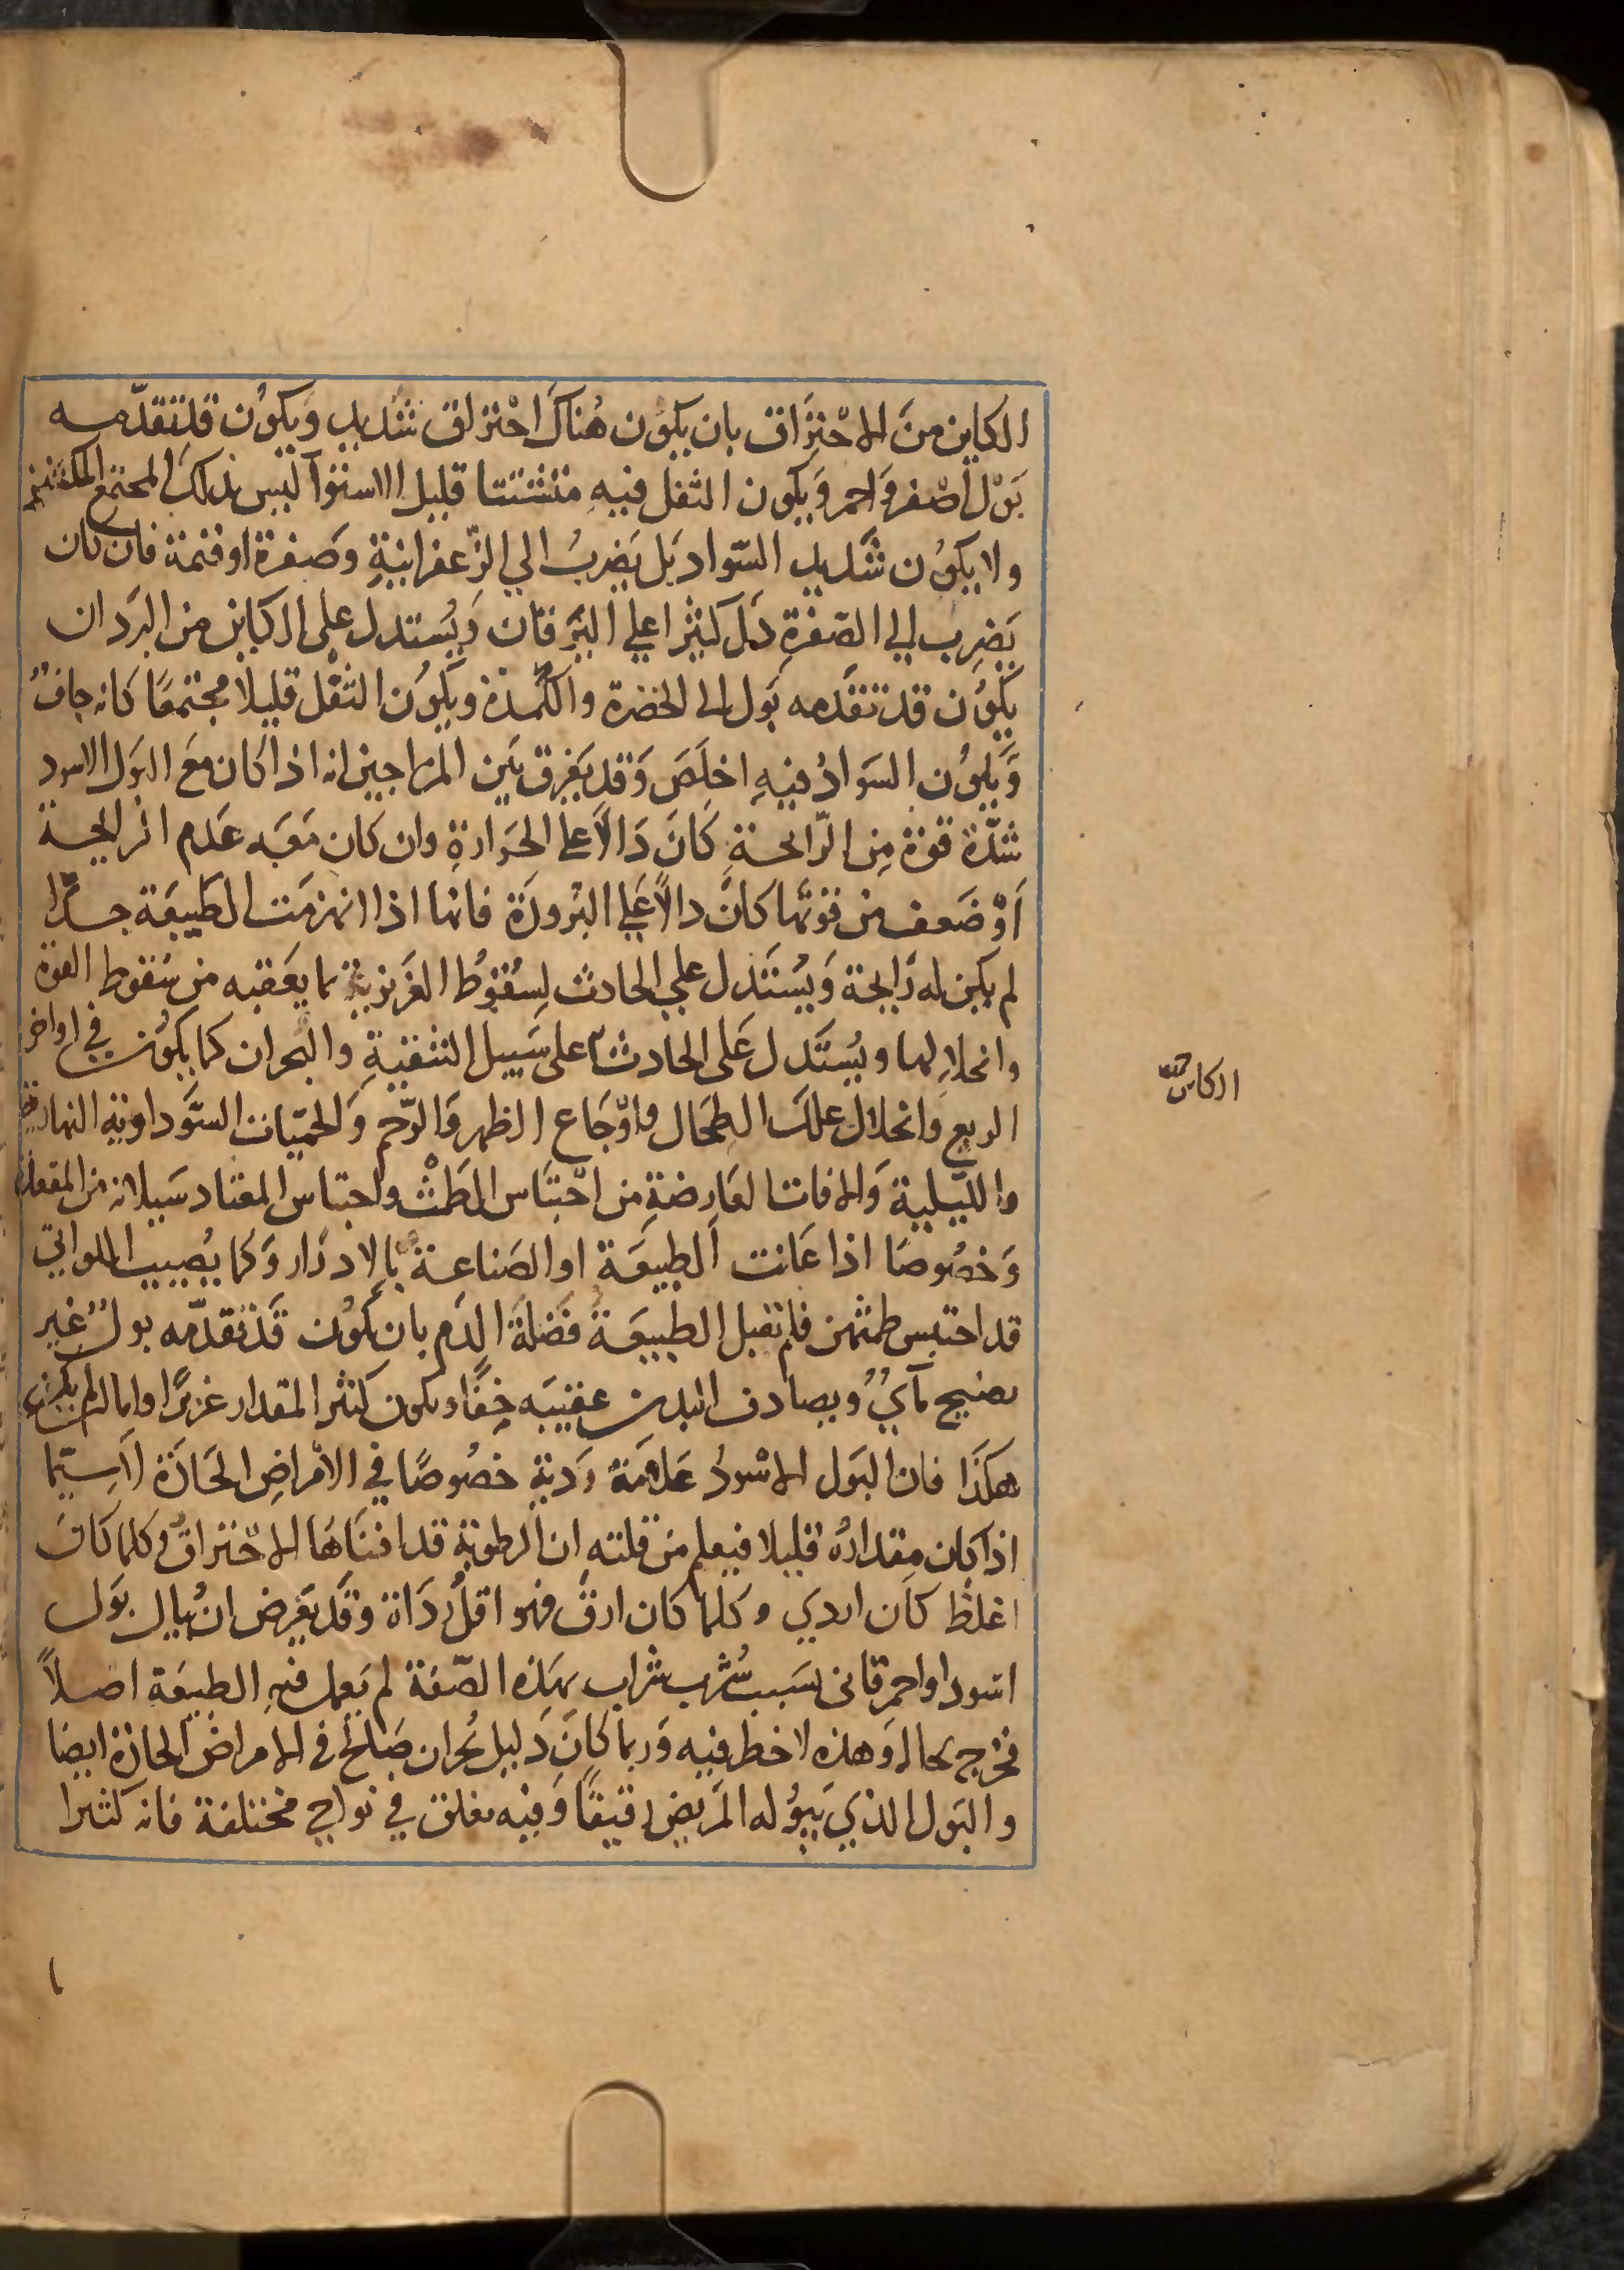 الكاين منَ الاحْتِرَاق بان يكوُن هُناكَ احْتراق شديد وَيكوُن قد تقدّمه
بَوْل أصْفر وَاحمر وَيكون الثفل فيهِ متشتتا قليل الاستوآ ليس بذلكَ المجتمع المكتنز
ولا يكوُن شديد السّواد بَل يَضربُ الي الزّعفرانيةِ وصَفرة او قتمة فان كان
يَضرِب الى الصّفرةِ دَل كثيرا علي اليَرقان وَيُستدل على الكاين من البرَد ان
يكوُن قد تقدمه بَول الى الخضرة والكُمدة ويكوُن الثفل قليلا مجتمعًا كانه جافٌ
وَيكوُن السَوادُ فيهِ اخلَصَ وَقد يَفرق بَين المزاجين انه اذا كان معَ البَول الاسود
شدّة قوة مِن الرّائحةِ كانَ دَالاً علي الحَرارةِ وان كان مَعَه عَدم الرايحة
اَوْ ضَعف من قوتها كانَ دالاً عَلي البرُودَة فانها اذا انهزمَت الطبيعَة جدًّا
لم يكن له رَايحة وَيُستَدل علي الحادث لِسُقوُط الغَريزية بما يعَقبه من سقوط القوة
وانحلالِها ويُستَدل عَلى الحادث على سَبيل التنقيةِ والبحران كما يكوُن في اواخر
الربع وانحلال علل الطحَال وَاوْجَاع الظهر وَالرّحم وَالحمّيات السَّوداوية النهارية
والليلية وَالافات العَارضةِ من احْتبَاس الطَمثْ واحتباس المعتاد سَيلانه من المقعدة
وَخصُوصًا اذا عَانت الطبيعَة او الصَناعة بالادرَار وَكما يُصيب اللواتي
قد احتبس طمثهن فلم تقبل الطبيعَة فَضلةَ الدَم بان يكَوُن قد تقدّمه بولٌ غير
نضيج مآيٌ ويصادف البدن عقيبَه خِفًا ويكون كثير المقدار غزيرًا واما ان لم يكن
هكذَا فان البَول الاسْودُ عَلامَة رَدية خصُوصًا في الامْراضِ الحَادَة لاسيّما
اذا كان مِقدارُه قليلا فيعلم من قلته ان الرطوبة قد افنَاهَا الاحْتراقُ وكلما كانَ
اغلظ كان اردي وكلما كان ارقّ فهو اقلُ رَدَاة وَقد يَعرض ان يُبال بَول
اسود او احمر قانى بسَبب شُرْب شراب بهَذه الصّفة لم يَعمل فيهِ الطبيعَة اصلاً
فخرج بحاله وَهذه لا خطر فيه وَربما كانَ دَليل بُحران صَالح في الامراض الحادة ايضا
والبَول الذي يَبوُله المَريض رَقيقًا وَفيه معلق في نواحي مختلفة فانه كثيرا
الكاين